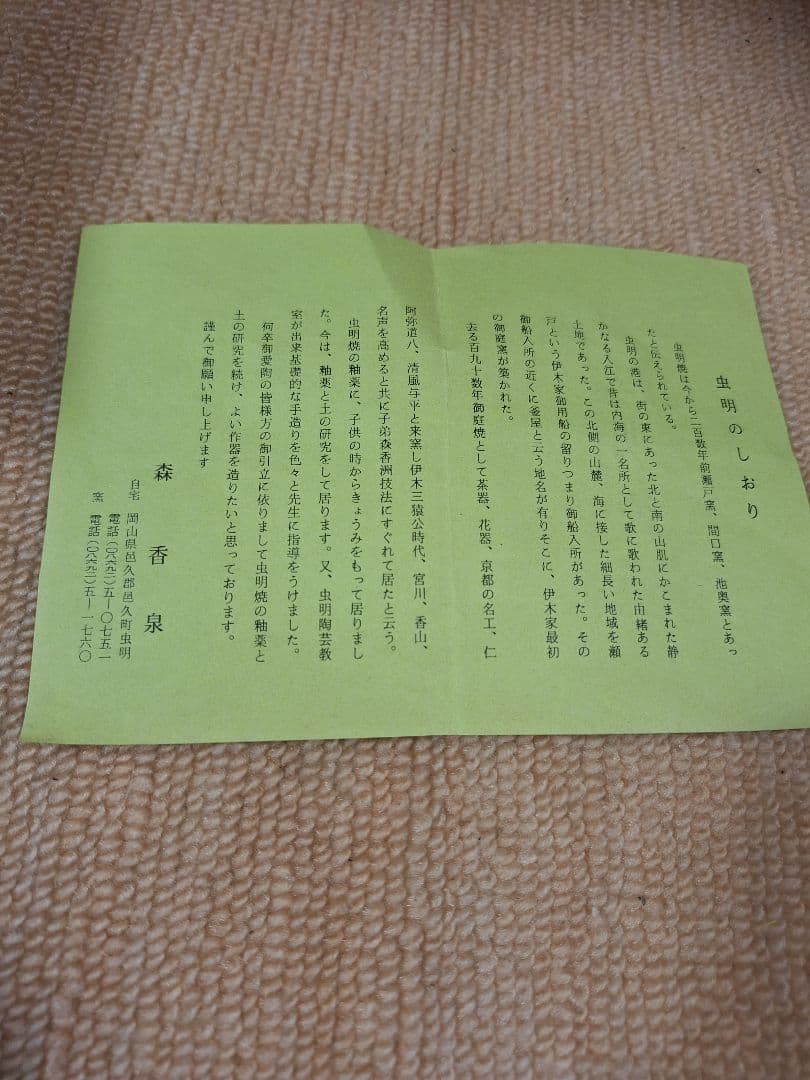 虫明のしおり
虫明焼は今から二百数年前瀬戸窯、間口窯、池奥窯とあっ
たと伝えられている。
虫明の港は、街の東にあった北と南の山肌にかこまれた静
かなる入江で昔は内海の一名所として歌に歌われた由緒ある
土地であった。この北側の山麓、海に接した細長い地域を瀬
戸という伊木家御用船の留りつまり御船入所があった。その
御船入所の近くに釜屋と云う地名が有りそこに、伊木家最初
の御庭窯が築かれた。
去る百九十数年御庭焼として茶器、花器、京都の名工、仁
阿弥道八、清風与平と来窯し伊木三猿公時代、宮川、香山、
名声を高めると共に子弟森香洲技法にすぐれて居たと云う。
虫明焼の釉薬に、子供の時からきょうみをもって居りまし
た。今は、釉薬と土の研究をして居ります。又、虫明陶芸教
室が出来基礎的な手造りを色々と先生に指導をうけました。
何卒御愛陶の皆様方の御引立に依りまして虫明焼の釉薬と
土の研究を続け、よい作器を造りたいと思っております。
謹んで御願い申し上げます
森香泉
自宅 岡山県邑久郡邑久町虫明
電話(〇八六九二)五―〇七五一
窯 電話(〇八六九二)五―一七六〇